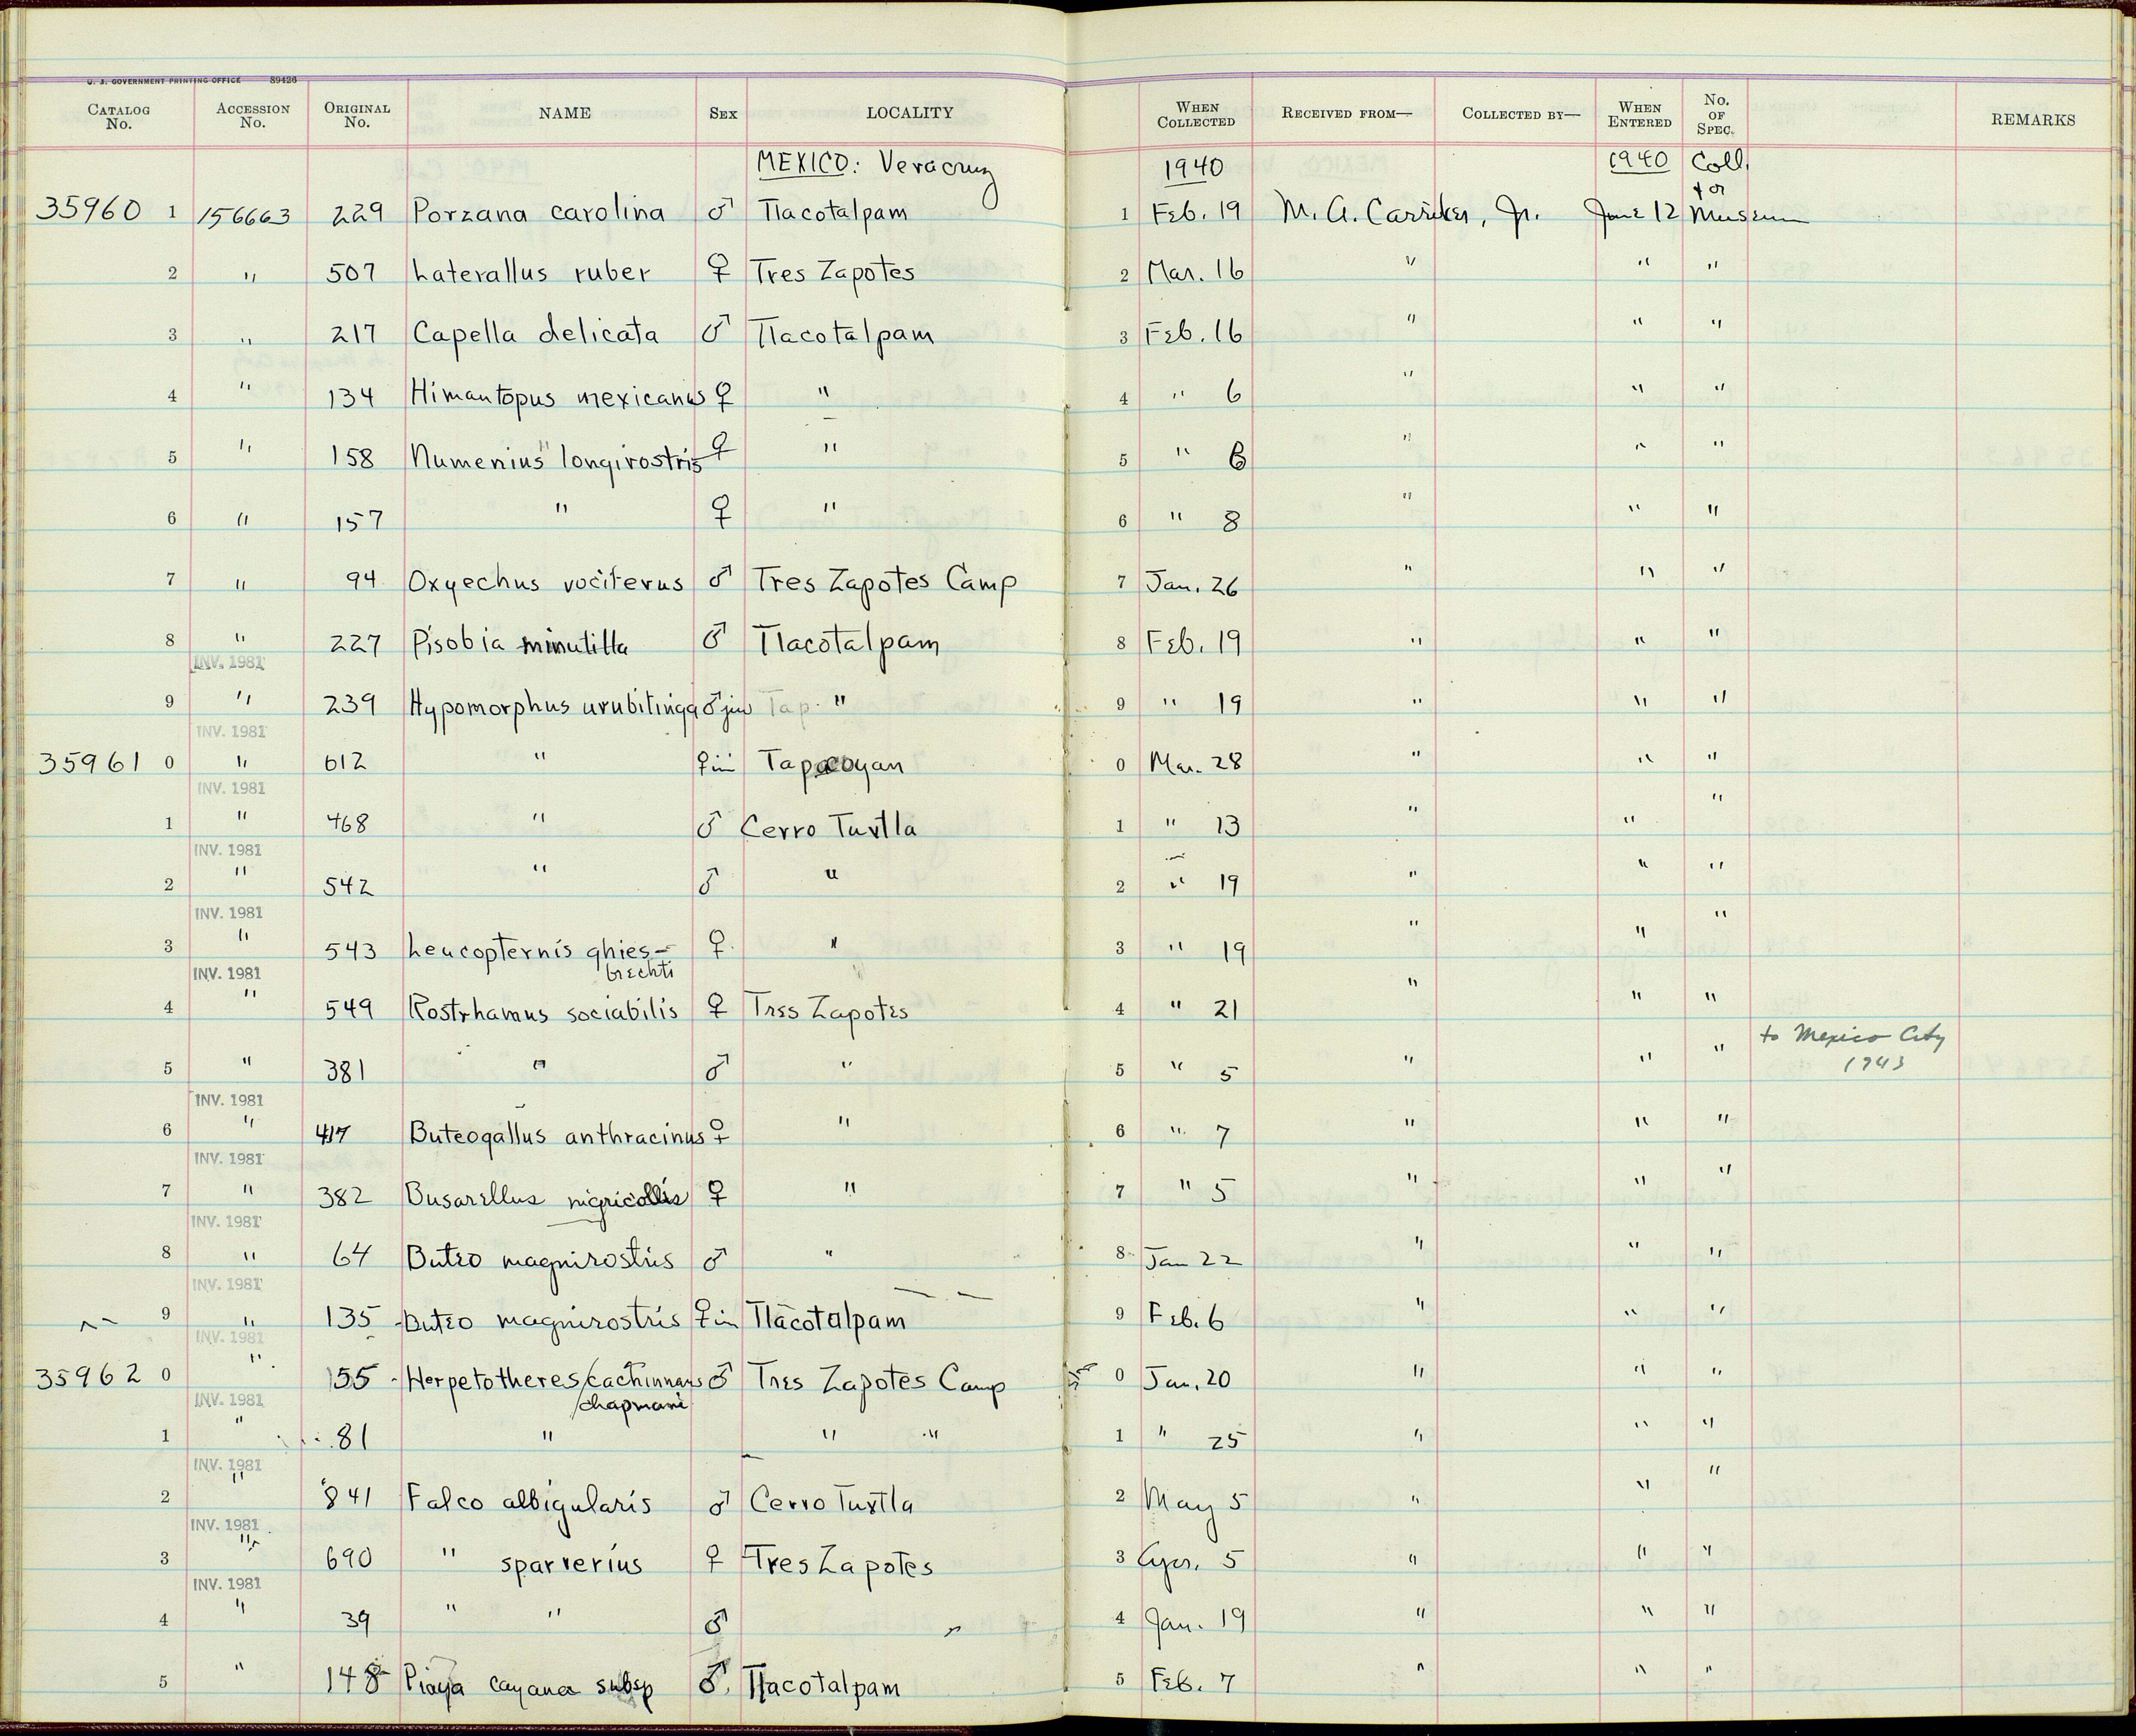 U. S. GOVERNMENT PRINTING OFFICE 89426
CATALOG No. ACCESSION No. ORIGINAL No. NAME SEX LOCALITY WHEN COLLECTED RECEIVED FROM— COLLECTED BY— WHEN ENTERED No. OF SPEC. REMARKS
MEXICO: Veracruz 1940 1940 Coll.
35960 1 156663 229 Porzana carolina ♂ Tlacotalpam 1 Feb. 19 M. A. Carriker, Jr. June 12 Museum
2 " 507 Laterallus ruber ♀ Tres Zapotes 2 Mar. 16 " " "
3 " 217 Capella delicata ♂ Tlacotalpam 3 Feb. 16 " " "
4 " 134 Himantopus mexicanus ♀ " 4 " 6 " " "
5 " 158 Numenius longirostris ♀ " 5 " 6 " " "
6 " 157 " ♀ " 6 " 8 " " "
7 " 94 Oxyechus vociferus ♂ Tres Zapotes Camp 7 Jan. 26 " " "
8 " 227 Pisobia minutilla ♂ Tlacotalpam 8 Feb. 19 " " "
INV. 1981
9 " 239 Hypomorphus urubitinga ♂ juv Tap. " 9 " 19 " " "
INV. 1981
35961 0 " 612 " ♀ im Tapacoyan 0 Mar. 28 " " "
INV. 1981
1 " 468 " ♂ Cerro Tuxtla 1 " 13 " " "
INV. 1981
2 " 542 " ♂ " 2 " 19 " " "
INV. 1981
3 " 543 Leucopternis ghies- ♀ " 3 " 19 " " "
brechti
INV. 1981
4 " 549 Rostrhamus sociabilis ♀ Tres Zapotes 4 " 21 " " "
5 " 381 " ♂ " 5 " 5 " " " to Mexico City
1943
INV. 1981
6 " 417 Buteogallus anthracinus ♀ " 6 " 7 " " "
INV. 1981
7 " 382 Busarellus nigricollis ♀ " 7 " 5 " " "
INV. 1981
8 " 64 Buteo magnirostris ♂ " 8 Jan 22 " " "
INV. 1981
9 " 135 Buteo magnirostris ♀ im Tlacotalpam 9 Feb. 6 " " "
INV. 1981
35962 0 " 55 Herpetotheres cachinnans ♂ Tres Zapotes Camp 0 Jan. 20 " " "
chapmani
INV. 1981
1 " 81 " " " 1 " 25 " " "
INV. 1981
2 " 841 Falco albigularis ♂ Cerro Tuxtla 2 May 5 " " "
INV. 1981
3 " 690 " sparverius ♀ Tres Zapotes 3 Apr. 5 " " "
INV. 1981
4 " 39 " " ♂ " 4 Jan. 19 " " "
5 " 148 Piaya cayana subsp ♂ Tlacotalpam 5 Feb. 7 " " "